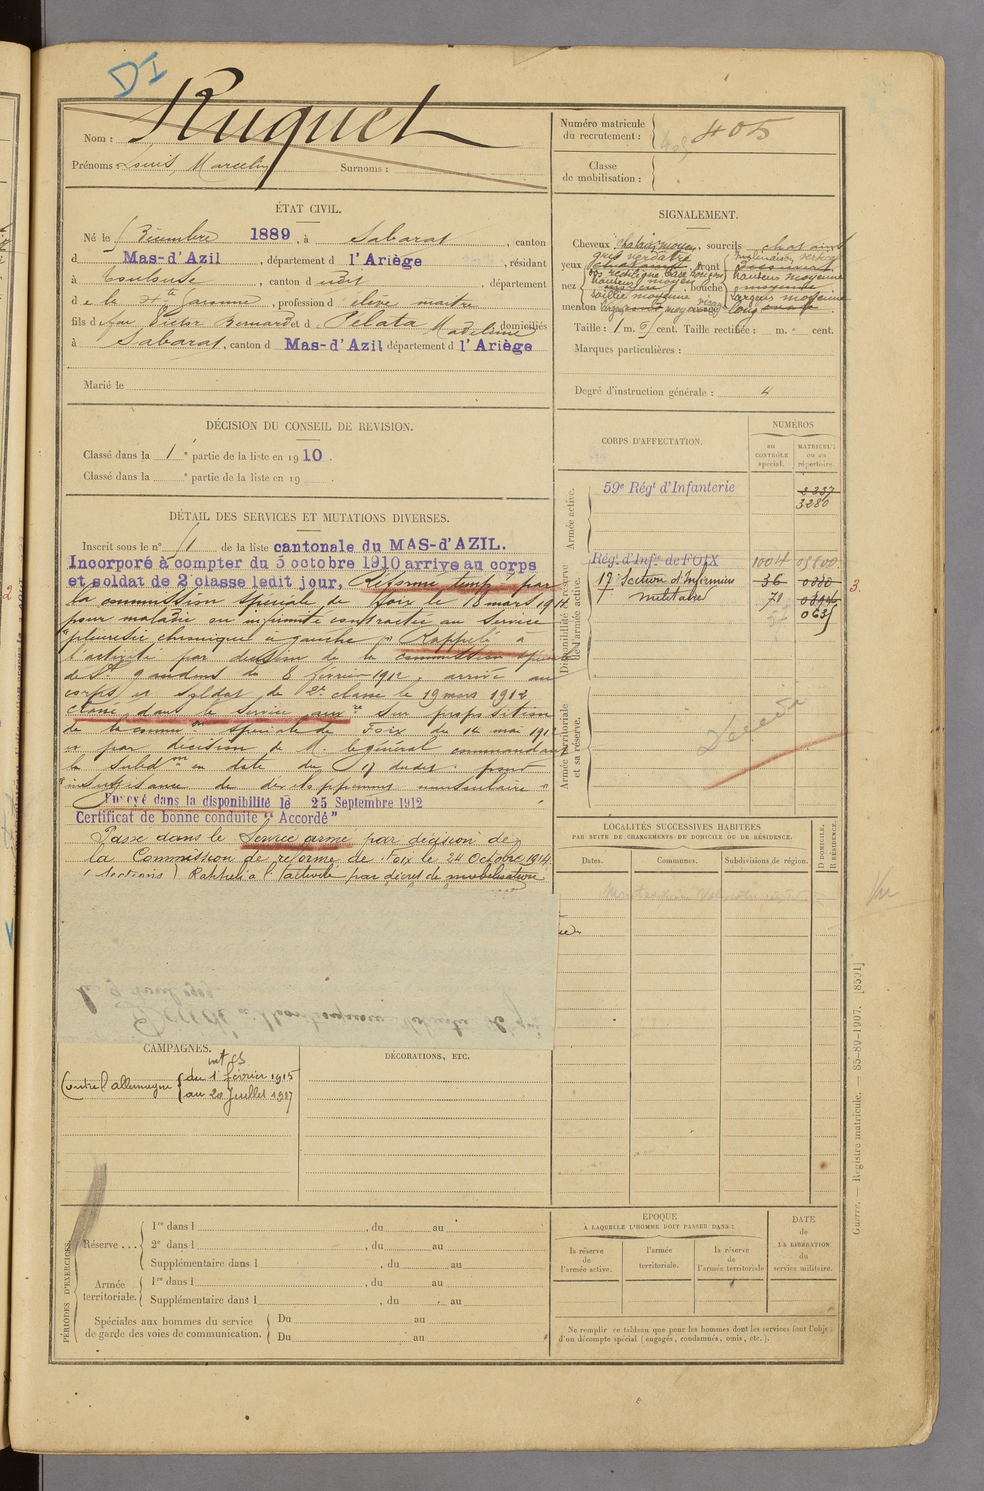 DI
Nom : Ruquet
Prénoms : Louis, Marcelin Surnoms :
Numéro matricule du recrutement : 405
Classe de mobilisation :
ÉTAT CIVIL.
Né le 5 Décembre 1889, à Sabarat, canton
d Mas-d'Azil, département d l'Ariège, résidant
à Toulouse, canton d udit, département
d e la Hte Garonne, profession d élève maître
fils d feu Victor Bernard et d Pelata Madeleine domiciliés
à Sabarat, canton d Mas-d'Azil département d l'Ariège
Marié le
SIGNALEMENT.
Cheveux châtain moyen, sourcils châtains
yeux gris verdâtre, front
nez rectiligne, bouche
menton
Taille : 1 m. cent. Taille rectifiée : m. cent.
Marques particulières :
Degré d'instruction générale : 4
DÉCISION DU CONSEIL DE REVISION.
Classé dans la 1e partie de la liste en 1910.
Classé dans la e partie de la liste en 19
DÉTAIL DES SERVICES ET MUTATIONS DIVERSES.
Inscrit sous le n° 51 de la liste cantonale du MAS-d'AZIL.
Incorporé à compter du 3 octobre 1910 arrivé au corps
et soldat de 2 classe ledit jour, Réformé tempre par
la commission spéciale de Foix le 18 mars 1911
pour maladie ou infirmité contractée au service
"pleurésie chronique à gauche" Rappelé à
l'activité par décision de la commission spéciale
de St Gaudens du 8 février 1912, arrivé au
corps et soldat de 2e classe le 19 mars 1912
Classé dans le service auxre sur proposition
de la common spéciale de Foix du 14 mai 1912
et par décision de M. le général commandant
la subdon en date du 17 dudit pour
"insuffisance de développement musculaire"
Envoyé dans la disponibilité le 25 Septembre 1912
Certificat de bonne conduite "Accordé"
Passé dans le Service armé par décision de
la Commission de réforme de Foix le 24 Octobre 1914
Rappelé à l'activité par décret de mobilisation
CORPS D'AFFECTATION.
NUMÉROS
au CONTRÔLE spécial.
MATRICULE ou au répertoire.
Armée active.
59e Régt d'Infanterie
2337
3280
Disponibilité et réserve de l'armée active.
Régt d'Infie de FOIX 1004
17e Section d'Infirmiers militaires 36
71
3.
Armée territoriale et sa réserve.
Décédé
LOCALITÉS SUCCESSIVES HABITÉES
PAR SUITE DE CHANGEMENTS DE DOMICILE OU DE RÉSIDENCE.
Dates. Communes. Subdivisions de région.
D DOMICILE. R RÉSIDENCE.
CAMPAGNES.
Contre l'allemagne du 1 février 1915
au 20 Juillet 1917
DÉCORATIONS, ETC.
PÉRIODES D'EXERCICES.
Réserve ...
1re dans l , du au
2e dans l , du au
Supplémentaire dans l , du au
Armée territoriale.
1re dans l , du au
Supplémentaire dans l , du au
Spéciales aux hommes du service de garde des voies de communication.
Du au
Du au
ÉPOQUE
À LAQUELLE L'HOMME DOIT PASSER DANS :
la réserve de l'armée active.
l'armée territoriale.
la réserve de l'armée territoriale
DATE de LA LIBÉRATION du service militaire.
Ne remplir ce tableau que pour les hommes dont les services font l'objet
d'un décompte spécial (engagés, condamnés, omis, etc.).
Guerre. — Registre matricule. — 85-89-1907. [8591]